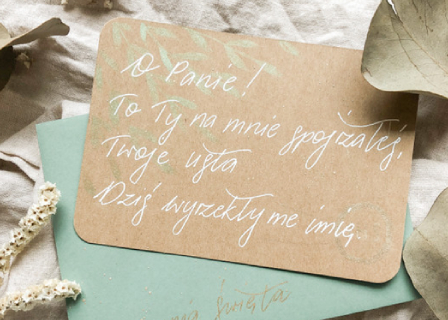 O Panie!
To Ty na mnie spojrzałeś,
Twoje usta
Dziś wyrzekły me imię.
święta